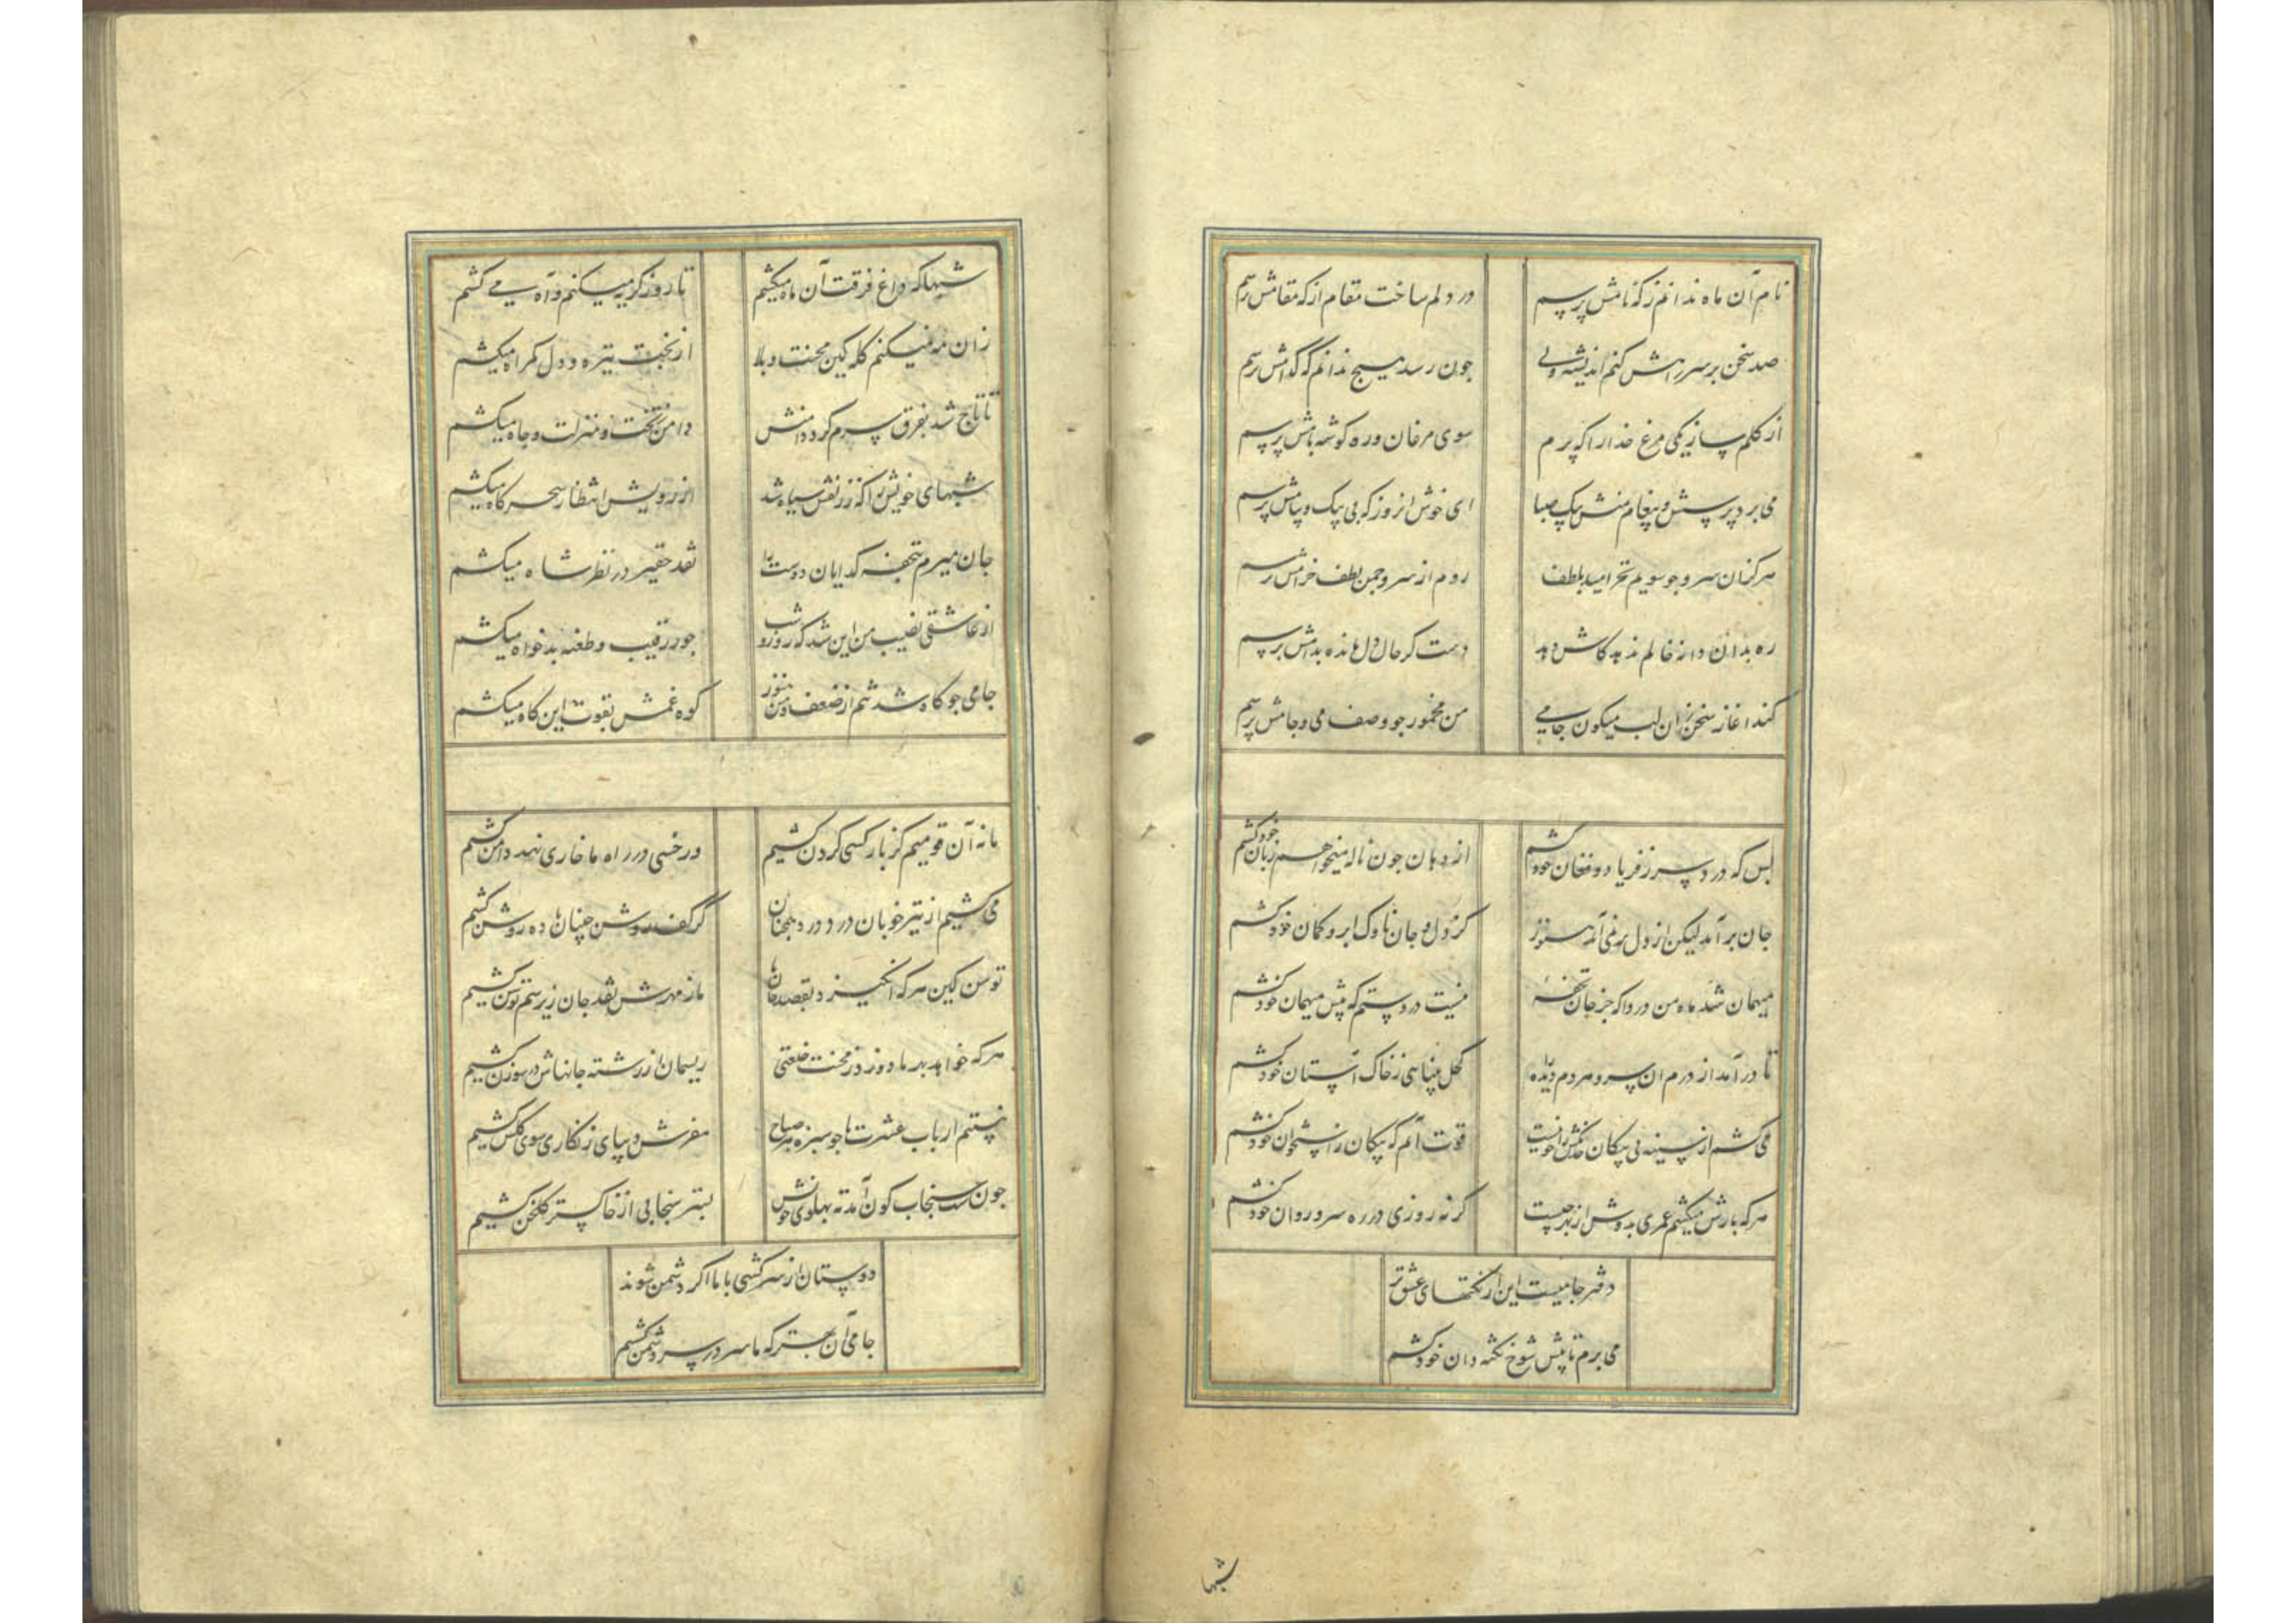 نام آن ماه ندانم ز که نامش پرسم در دلم ساخت مقام از که مقامش پرسم
صد سخن بر سر راهش کنم اندیشه ولی جون رسد هیچ ندانم که کدامش پرسم
از کلم ساز یکی مرغ خدا را که پرم سوی مرغان و ره کوشه بامش پرسم
می برد پرسش و پیغام منش پیک صبا ای خوش انروز که بی پیک و پیامش پرسم
هر کز ان سرو جو سویم نخرامید بلطف روم از سرو جمن لطف خرامش پرسم
ره بدان دانه خالم ندهد کاش دهد دست کز حال دل مانده بدامش پرسم
کند اغاز سخن زان لب میکون جامی من مخمور جو وصف می و جامش پرسم
بس که درد سر ز فریاد و فغان خود کشم از دهان جون ناله میخواهم زبان خود کشم
جان برآمد لیکن از دل برنمی آید هنوز کز دل و جان ناوک ابرو کمان خود کشم
میهمان شد ماه من دردا که جز جان تحفهٔ نیست در دستم که پیش میهمان خود کشم
تا درآمد از درم ان سرو مردم دیده را کحل بینایی ز خاک آستان خود کشم
می کشم از سینه بی پیکان خدنکش را نیست قوت آنم که پیکان ز استخوان خود کشم
هر که بارش میکشم عمری بدوش از بهر چیست کر نه روزی در ره سرو روان خود کشم
دفتر جامیست این از نکتهای عشق تر
می برم تا پیش شوخ نکته دان خود کشم
شبها
شبها که داغ فرقت آن ماه میکشم تا روز کریه میکنم و آه می کشم
زان مه نمیکنم کله کین محنت و بلا از بخت تیره و دل کمراه میکشم
تا تاج شد بفرق سرم کرد دامنش دامن ز تخت و منزلت و جاه میکشم
شبهای خویش را که ز زلفش سیاه شد از رویش انتظار سحرکاه میکشم
جان میبرم بتحفه کدایان دوست را نقد حقیر در نظر شاه میکشم
از عاشقی نصیب من این شد که روز و شب جور رقیب و طعنه بدخواه میکشم
جامی جو کاه شد تنم از ضعف و من هنوز کوه غمش بقوت این کاه میکشم
ما نه آن قومیم کز بار کسی کردن کشیم ور خسی در راه ما خاری نهد دامن کشیم
می کشیم از تیر خوبان درد در دیده روشن کشیم
توسن کین هر که انکیزد بقصد جان ما ما ز مهرش نقد جان زیر سم توسن کشیم
هر که خواهد بهر ما دوزد ز محنت خلعتی ریسمان از رشته جانهاش در سوزن کشیم
نیستیم ارباب عشرت تا جو سبزه هر صباح مفرش دیبای زنکاری سوی کلشن کشیم
جون سک سنجاب کون آمد ته پهلوی خویش بستر سنجابی از خاکستر کلخن کشیم
دوستان از سرکشی با ما اکر دشمن شوند
جامی آن بهتر که ما سر در سر دشمن کشیم